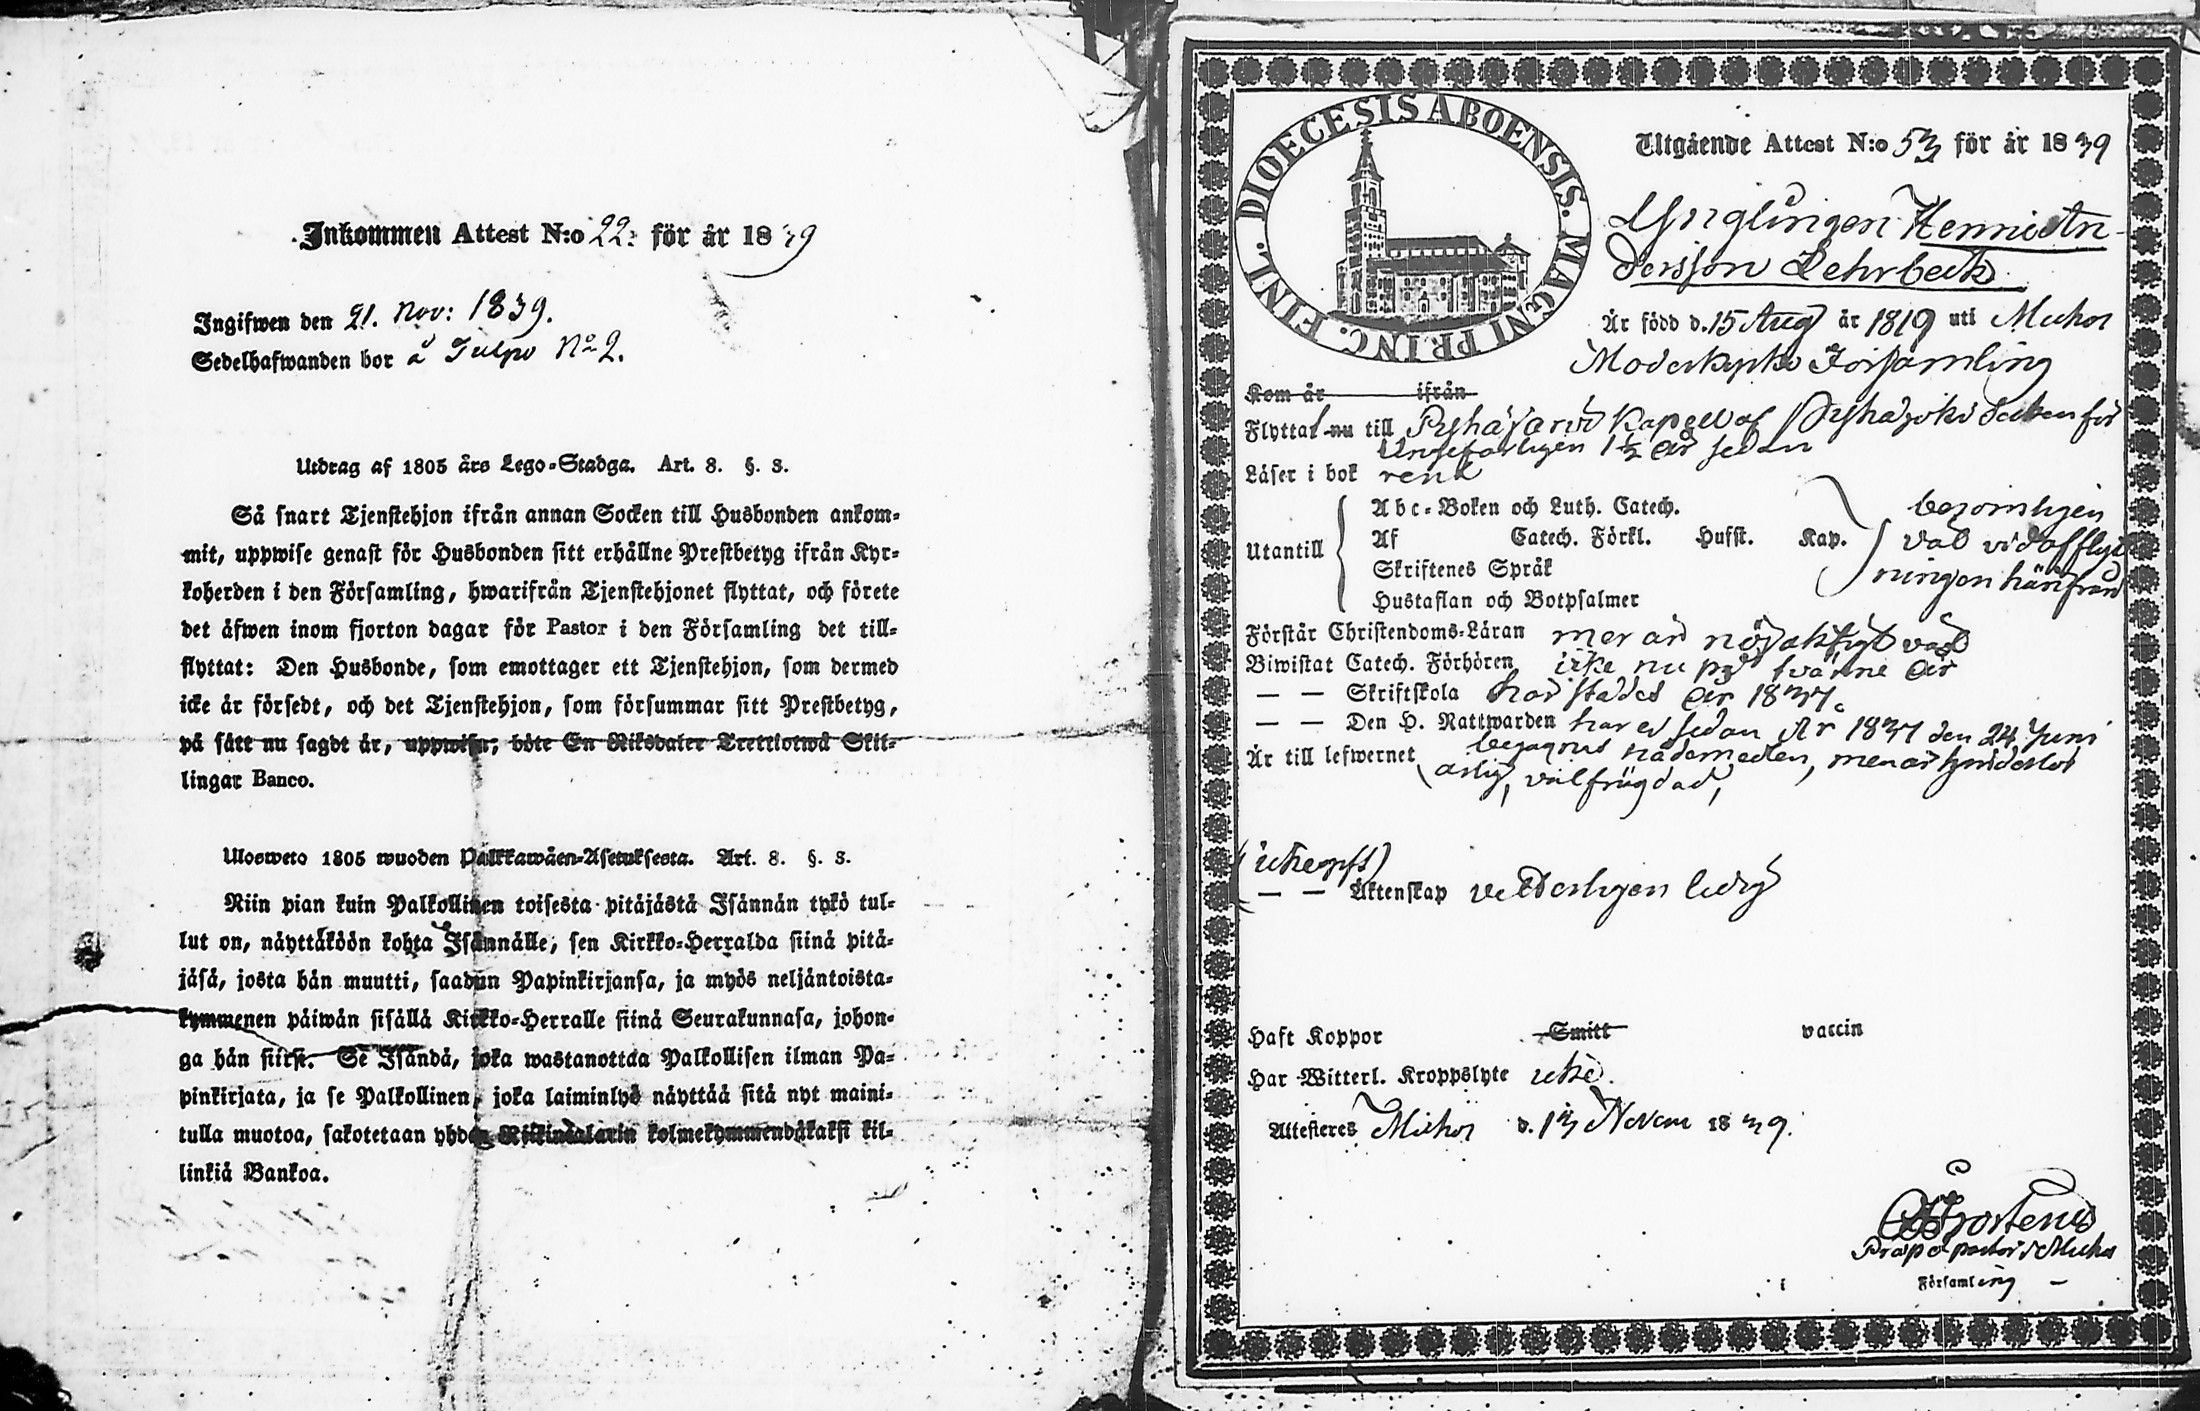 Inkommen Attest N:o 22. för år 1839
Ingifwen den 21. Nov: 1839.
Sedelhafwanden bor å Tulpo No 2.
Utdrag af 1805 års Lego-Stadga. Art. 8. §. 3.
Så snart Tjenstehjon ifrån annan Socken till Husbonden ankom-
mit, uppwise genast för Husbonden sitt erhållne Prestbetyg ifrån Kyr-
koherden i den Församling, hwarifrån Tjenstehjonet flyttat, och förete
det äfwen inom fjorton dagar för Pastor i den Församling det till-
flyttat: Den Husbonde, som emottager ett Tjenstehjon, som dermed
icke är försedt, och det Tjenstehjon, som försummar sitt Prestbetyg,
på sätt nu sagdt är, uppwisa, böte En Riksdaler Trettiotwå Skil-
lingar Banco.
Ulosweto 1805 wuoden Palkkawäen-Asetuksesta. Art. 8. §. 3.
Niin pian kuin Palkollinen toisesta pitäjästä Isännän tykö tul-
lut on, näyttäköön kohta Isännälle, sen Kirkko-Herralda siinä pitä-
jäsä, josta hän muutti, saadun Papinkirjansa, ja myös neljäntoista-
kymmenen päiwän sisällä Kirkko-Herralle siinä Seurakunnasa, johon-
ga hän siirsi. Se Isändä, joka wastanottaa Palkollisen ilman Pa-
pinkirjata, ja se Palkollinen, joka laiminlyö näyttää sitä nyt maini-
tulla muotoa, sakotetaan yhden Riikindalarin kolmekymmendäkaksi kil-
linkiä Bankoa.
DIOECESIS ABOENSIS. MAGNI PRINC. FINL.
Utgående Attest N:o 53 för år 1839
Ynglingen Henric An-
dersson Lehrbeck
Är född d. 15 Aug år 1819 uti Muhos
Moderkyrko Församling
Kom år ifrån
Flyttat nu till Pyhäjärvi Kapell af Pyhäjoki Socken för
Ungefärligen 1½ år sedan
Läser i bok rent
Utantill
Abc-Boken och Luth. Catech.
Af Catech. Förkl. Husst. Kap.
Skriftenes Språk
Hustaflan och Botpsalmer
berömligen
väl vid afflytt
ningen härifrån
Förstår Christendoms-Läran mer än nöjaktigt väl
Biwistat Catech. Förhören icke nu på tvänne år
— — Skriftskola har stadet år 1837.
— — Den H. Nattwarden har ej sedan År 1837 den 24 Juni
begagnat nådemedlen, men är
Är till lefwernet ärlig, välfrägdad,
— — Äktenskap veterligen ledig
Haft Koppor Smitt vaccin
Har Witterl. Kroppslyte icke.
Attesteres Muhos d. 13 Novem 1839.
Prap o pastor i Muhos
Församling